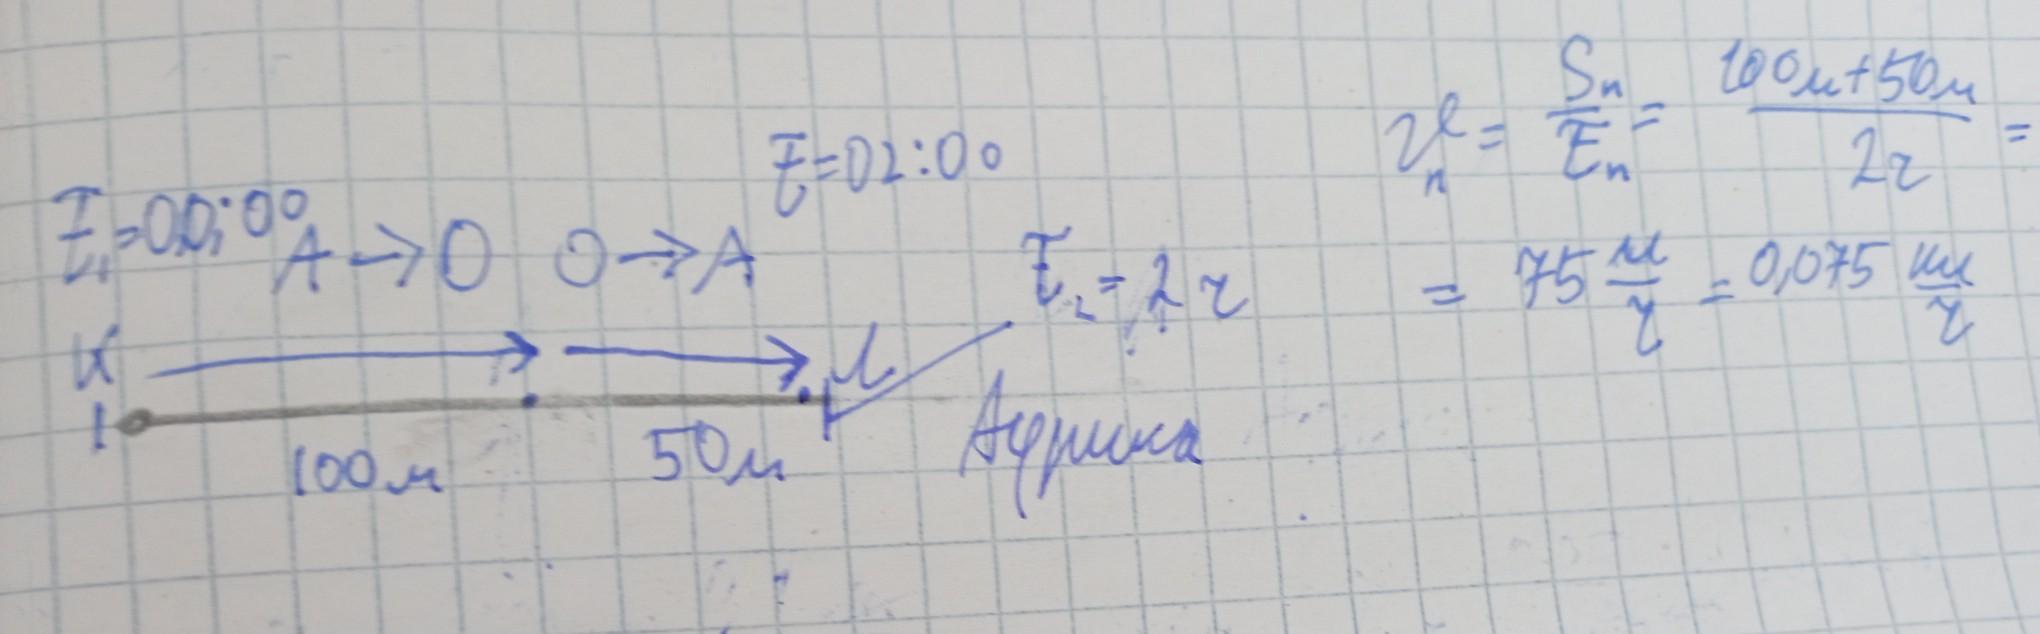 t₁=00:00
A → O O → A
t=02:00
t₂=2ч
К
L
1
100м
50м
Адрика
vₙ = Sₙ/tₙ = 100м+50м/2ч =
= 75 м/ч = 0,075 км/ч